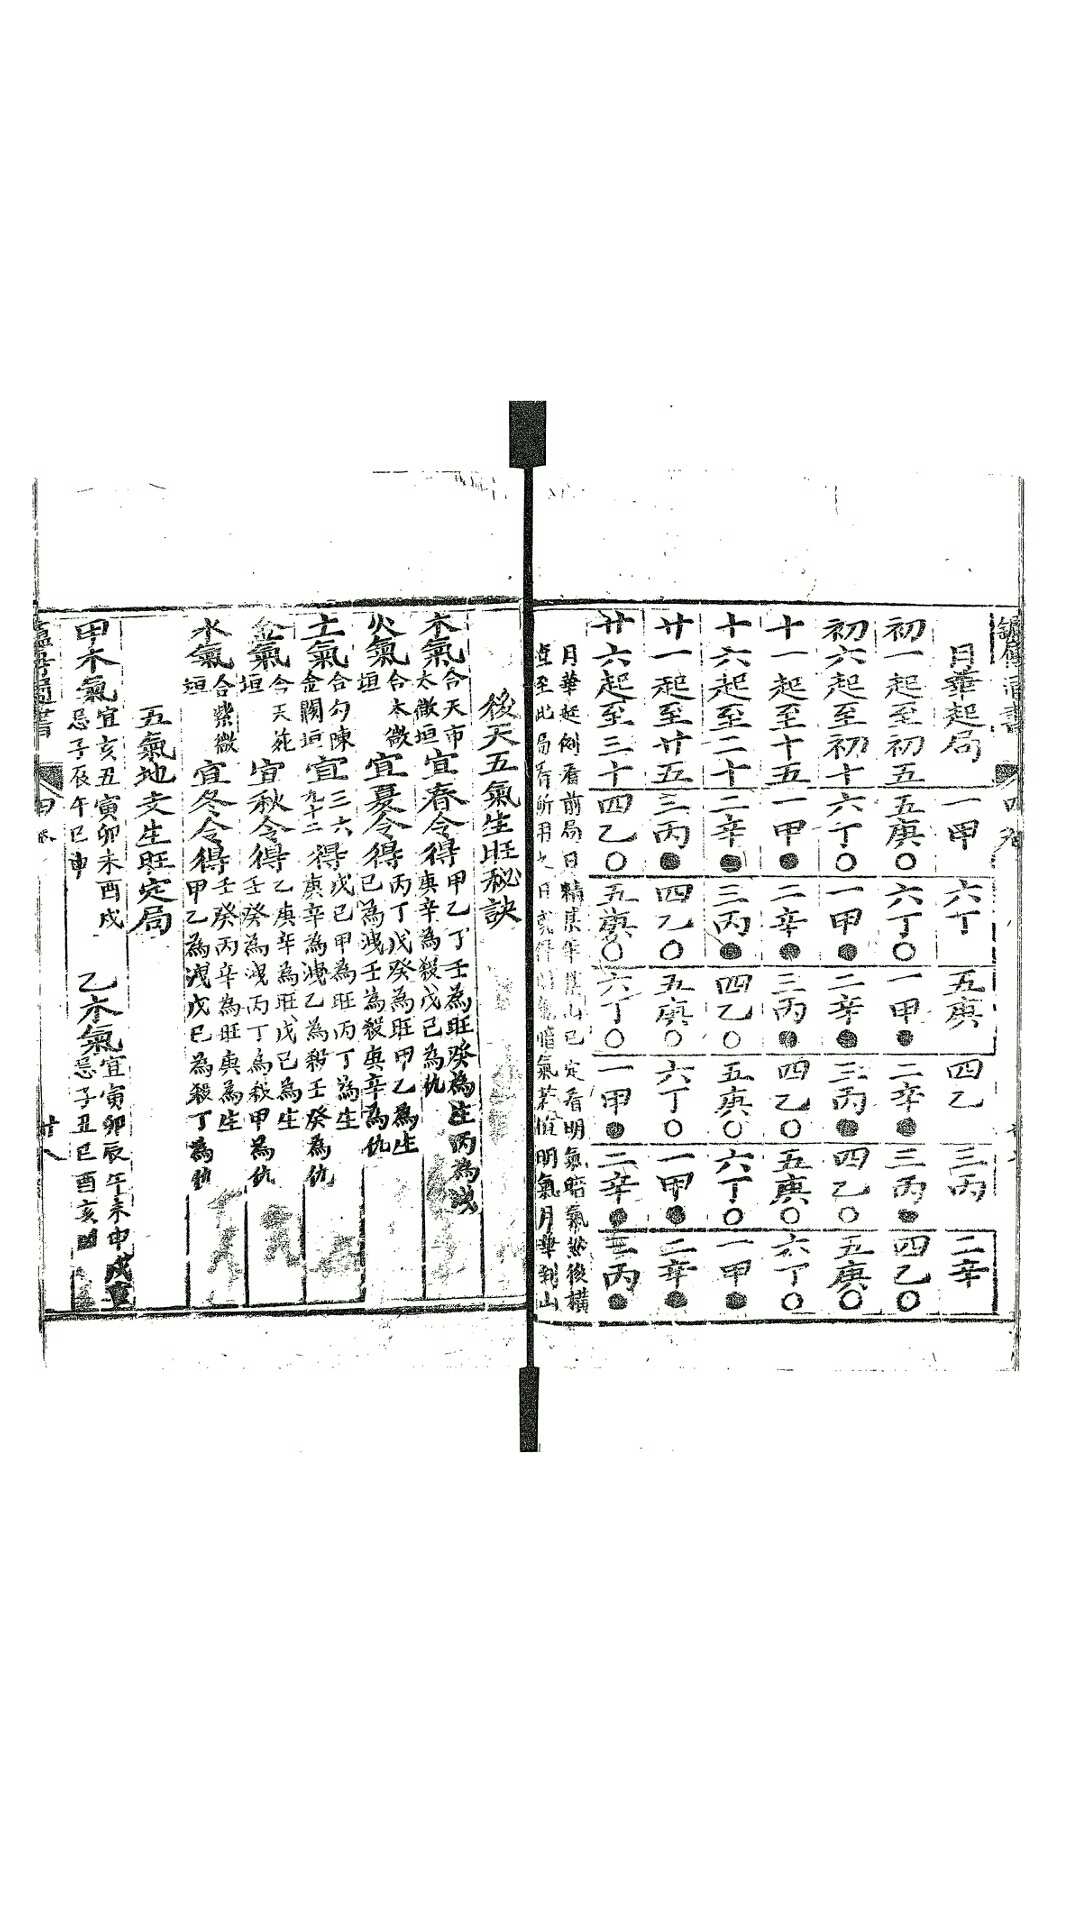 月華起局 一甲 六丁 五庚 四乙 三丙 二辛
初一起至初五 五庚○ 六丁○ 一甲● 二辛● 三丙● 四乙○
初六起至初十 六丁○ 一甲● 二辛● 三丙● 四乙○ 五庚○
十一起至十五 一甲● 二辛● 三丙● 四乙○ 五庚○ 六丁○
十六起至二十 二辛● 三丙● 四乙○ 五庚○ 六丁○ 一甲●
廿一起至廿五 三丙● 四乙○ 五庚○ 六丁○ 一甲● 二辛●
廿六起至三十 四乙○ 五庚○ 六丁○ 一甲● 二辛● 三丙●
月華起例看前局日精某年某山已定看明氣暗氣然後橫
直至此局看所用之日 暗氣若值明氣月華到山
後天五氣生旺秘訣
木氣 合天市太微垣 宜春令得 甲乙丁壬為旺癸為生丙為洩庚辛為殺戊己為仇
火氣 合太微垣 宜夏令得 丙丁戊癸為旺甲乙為生己為洩壬為殺庚辛為仇
土氣 合勾陳金闕垣 宜三六九十二得 戊己甲為旺丙丁為生庚辛為洩乙為殺壬癸為仇
金氣 合天苑垣 宜秋令得 乙庚辛為旺戊己為生壬癸為洩丙丁為殺甲為仇
水氣 合紫微垣 宜冬令得 壬癸丙辛為旺庚為生甲乙為洩戊己為殺丁為仇
五氣地支生旺定局
甲木氣 宜亥丑寅卯未酉戌忌子辰午巳申 乙木氣 宜寅卯辰午未申戌忌子丑巳酉亥
四卷
廿八